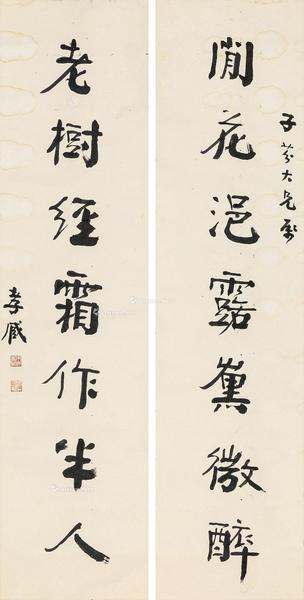 子芬大兄
閒花浥露薰微醉
老樹經霜作半人
孝臧